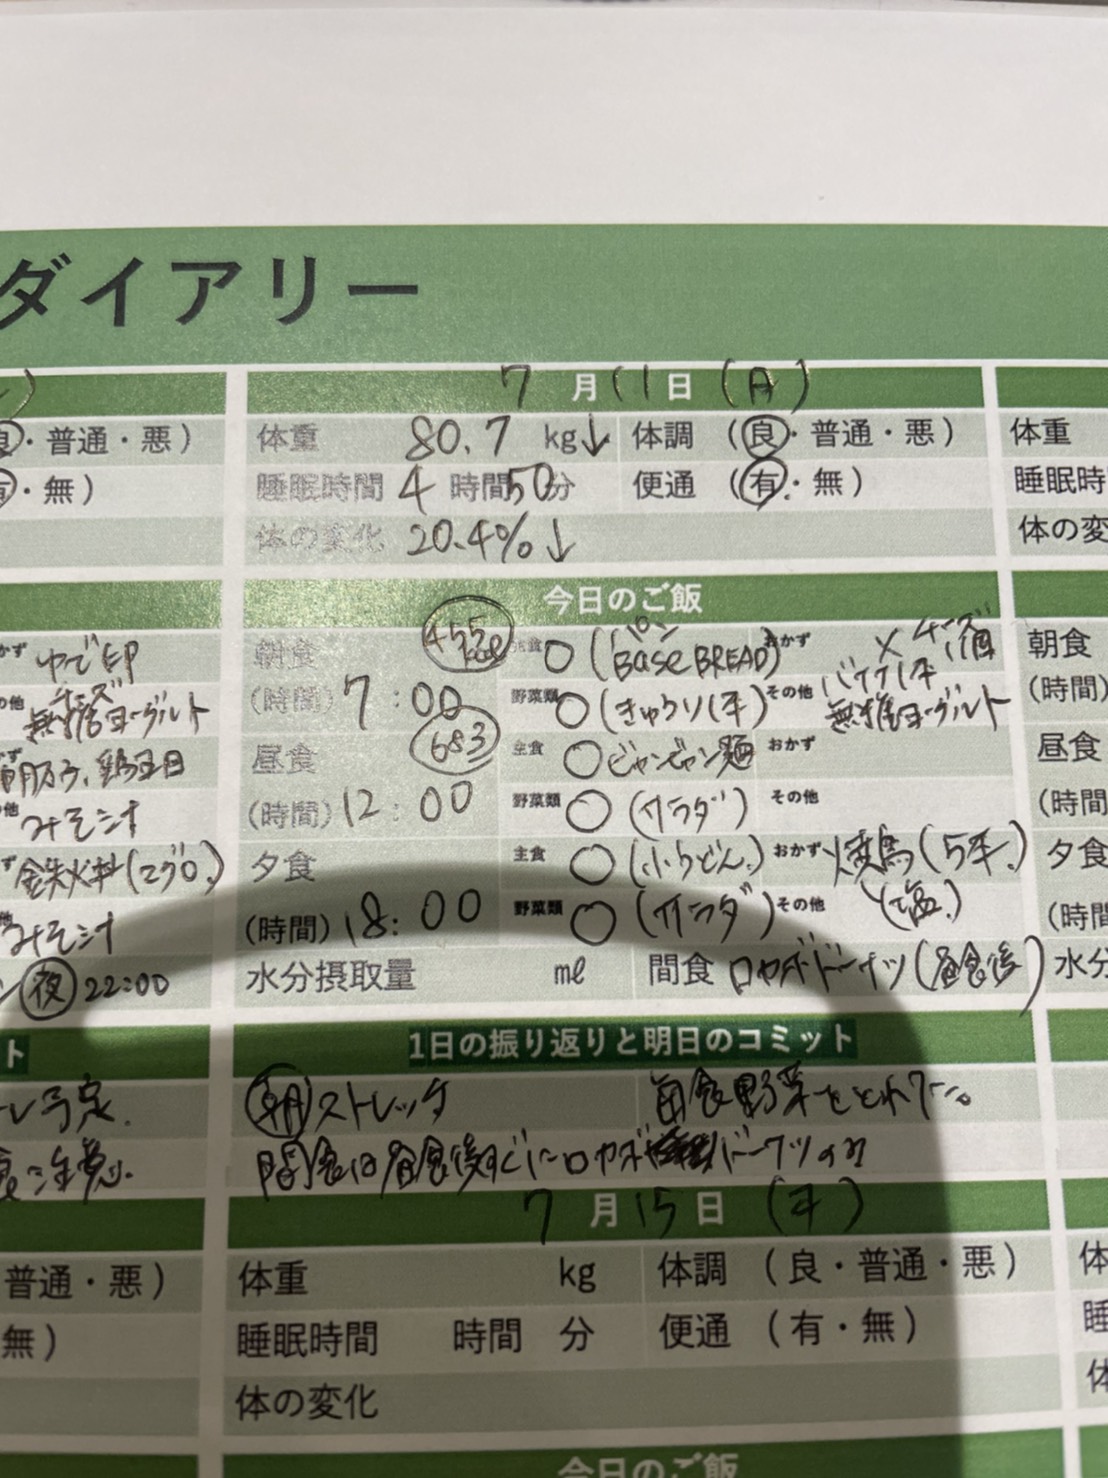 ダイアリー
7月11日(月)
良・普通・悪)
体重 80.7 kg↓ 体調 (良・普通・悪)
体重
有・無)
睡眠時間 4 時間 50分 便通 (有・無)
睡眠時
体の変化 20.4%↓
体の変
今日のご飯
かず ゆで卵
朝食 455kcal 主食 ○(BASE BREAD) おかず × チーズ1個
朝食
の他 チーズ 無糖ヨーグルト
(時間) 7:00 野菜類 ○(きゅうり1本) その他 バナナ1本 無糖ヨーグルト
(時間)
昼食 683 主食 ○ビャンビャン麺 おかず
昼食
みそ汁
(時間) 12:00 野菜類 ○(サラダ) その他
(時間
鉄火丼(マグロ)
夕食 主食 ○(小うどん) おかず 焼鳥(5本)
夕食
みそ汁
(時間) 18:00 野菜類 ○(サラダ) その他 (塩)
(時間
夜 22:00
水分摂取量 ml 間食 ロカボドーナツ(昼食後)
水分
ト
1日の振り返りと明日のコミット
レ予定.
朝ストレッチ 毎食野菜をとれた。
に注意.
間食は昼食後すぐにロカボドーナツのみ
7月15日(木)
普通・悪)
体重 kg 体調 (良・普通・悪)
体
無)
睡眠時間 時間 分 便通 (有・無)
睡
体の変化
体
今日のご飯